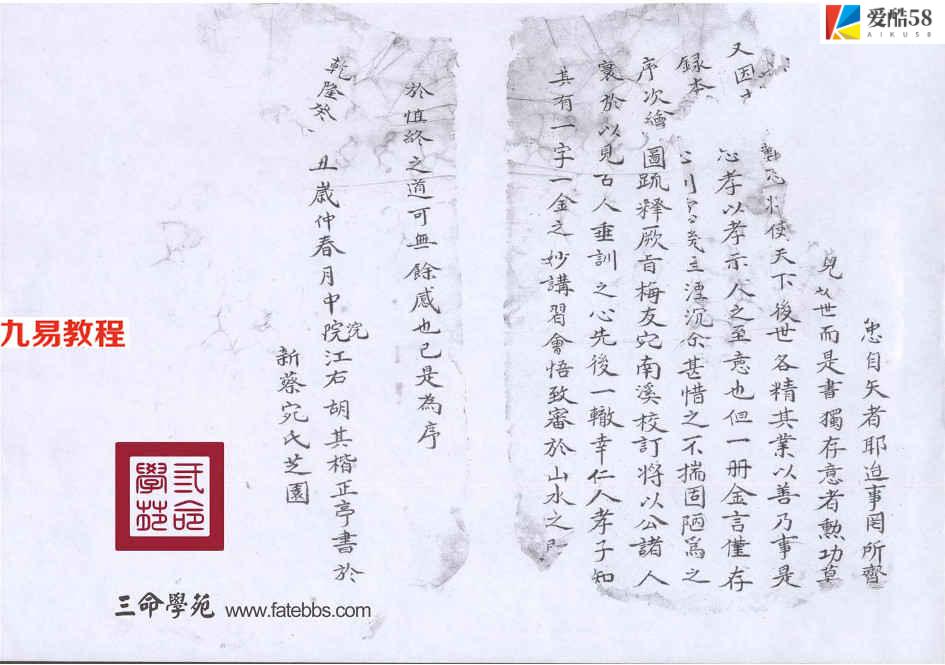 忠自矢者耶迨事罔所齊
世而是書獨存意者勲功草
將使天下後世各精其業以善乃事是
又因
心孝以孝示人之至意也但一册金言僅存
録本
湮沉余甚惜之不揣固陋為之
序次繪圖疏釋厥旨梅友宛南溪校訂將以公諸人
寰於以見古人垂訓之心先後一轍幸仁人孝子知
其有一字一金之妙講習會悟致審於山水之
於慎終之道可無餘感也已是為序
乾隆癸丑歲仲春月中浣江右胡其楷正亭書於
院
新蔡宛氏芝園
爱酷58
AIKU58
九易教程
三命學苑
三命學苑 www.fatebbs.com